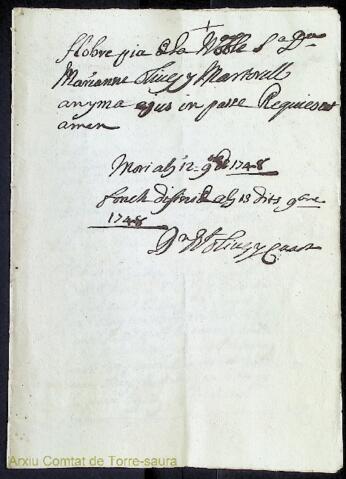 +
Mobre pia de la Noble Sª Dª
Marianne Olives y Martorell
anyma egus in pace Requiescat
amen
Mori als 12 9bre 1748
fonch als 13 dits 9bre
1748
Olives y
Arxiu Comtat de Torre-saura